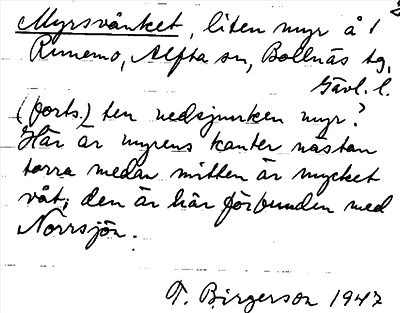 2
Myrsvånket, liten myr å 1
Runemo, Alfta sn, Bollnäs tg,
Gävl. l.
(forts.) ten nedsjunken myr?
Här är myrens kanter nästan
torra medan mitten är mycket
våt; den är här förbunden med
Norrsjön.
T. Birgerson 1947